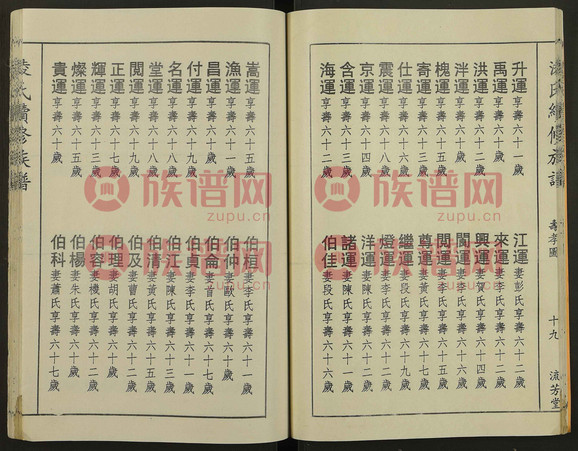 升運享壽六十一歲
禹運享壽六十二歲
洪運享壽六十二歲
泮運享壽六十一歲
槐運享壽六十五歲
寄運享壽六十三歲
仕運享壽六十一歲
震運享壽六十二歲
京運享壽六十四歲
含運享壽六十三歲
海運享壽六十二歲
江運妻彭氏享壽六十二歲
來運妻李氏享壽六十二歲
興運妻賀氏享壽六十四歲
閔運妻李氏享壽六十三歲
閏運妻李氏享壽六十五歲
尊運妻黃氏享壽六十一歲
繼運妻段氏享壽六十九歲
燈運妻李氏享壽六十二歲
洋運妻陳氏享壽六十二歲
諸運妻陳氏享壽六十一歲
伯佳妻段氏享壽六十六歲
氏續修族譜
壽孝圖
十九
流芳堂
嵩運享壽六十五歲
漁運享壽六十一歲
昌運享壽六十六歲
付運享壽六十九歲
名運享壽六十八歲
堂運享壽六十八歲
閲運享壽六十二歲
正運享壽六十七歲
輝運享壽六十三歲
燦運享壽六十五歲
貴運享壽六十歲
伯桓妻李氏享壽六十一歲
伯仲妻歐氏享壽六十一歲
伯侖妻曾氏享壽六十七歲
伯貞妻李氏享壽六十一歲
伯江妻陳氏享壽六十三歲
伯清妻黃氏享壽六十五歲
伯及妻曹氏享壽六十二歲
伯理妻胡氏享壽六十歲
伯容妻機氏享壽六十二歲
伯楊妻朱氏享壽六十三歲
伯科妻蕭氏享壽六十七歲
氏續修族譜
族谱网
zupu.cn
族谱网
zupu.cn
族谱网
zupu.cn